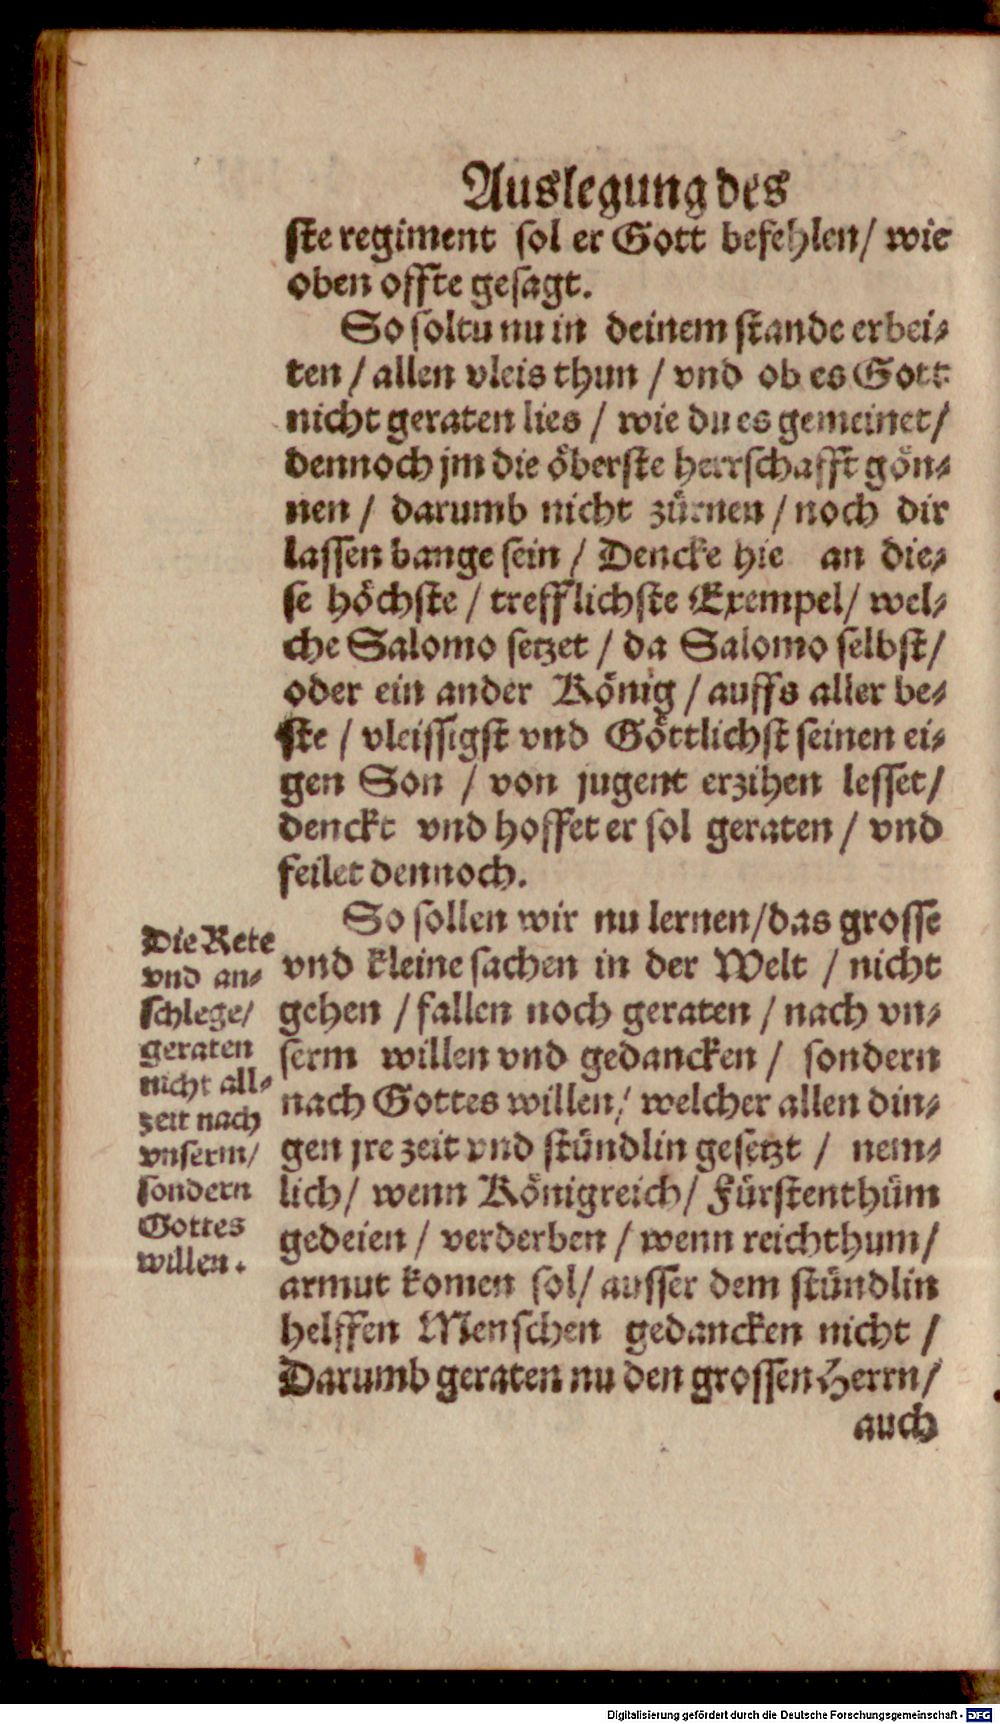 Auslegung des
ste regiment sol er Gott befehlen/ wie
oben offte gesagt.
So soltu nu in deinem stande erbei-
ten / allen vleis thun / vnd ob es Gott
nicht geraten lies / wie du es gemeinet/
dennoch jm die öberste herrschafft gön-
nen / darumb nicht zürnen / noch dir
lassen bange sein / Dencke hie an die-
se höchste / trefflichste Exempel/ wel-
che Salomo setzet / da Salomo selbst/
oder ein ander König / auffs aller be-
ste / vleissigst vnd Göttlichst seinen ei-
gen Son / von jugent erzihen lesset/
denckt vnd hoffet er sol geraten / vnd
feilet dennoch.
So sollen wir nu lernen/das grosse
vnd kleine sachen in der Welt / nicht
gehen / fallen noch geraten / nach vn-
serm willen vnd gedancken / sondern
nach Gottes willen/ welcher allen din-
gen jre zeit vnd stündlin gesetzt / nem-
lich/ wenn Königreich/ Fürstenthüm
gedeien / verderben / wenn reichthum/
armut komen sol/ ausser dem stündlin
helffen Menschen gedancken nicht /
Darumb geraten nu den grossen Herrn/
auch
Die Rete
vnd an-
schlege/
geraten
nicht all-
zeit nach
vnserm/
sondern
Gottes
willen.
Digitalisierung gefördert durch die Deutsche Forschungsgemeinschaft - DFG